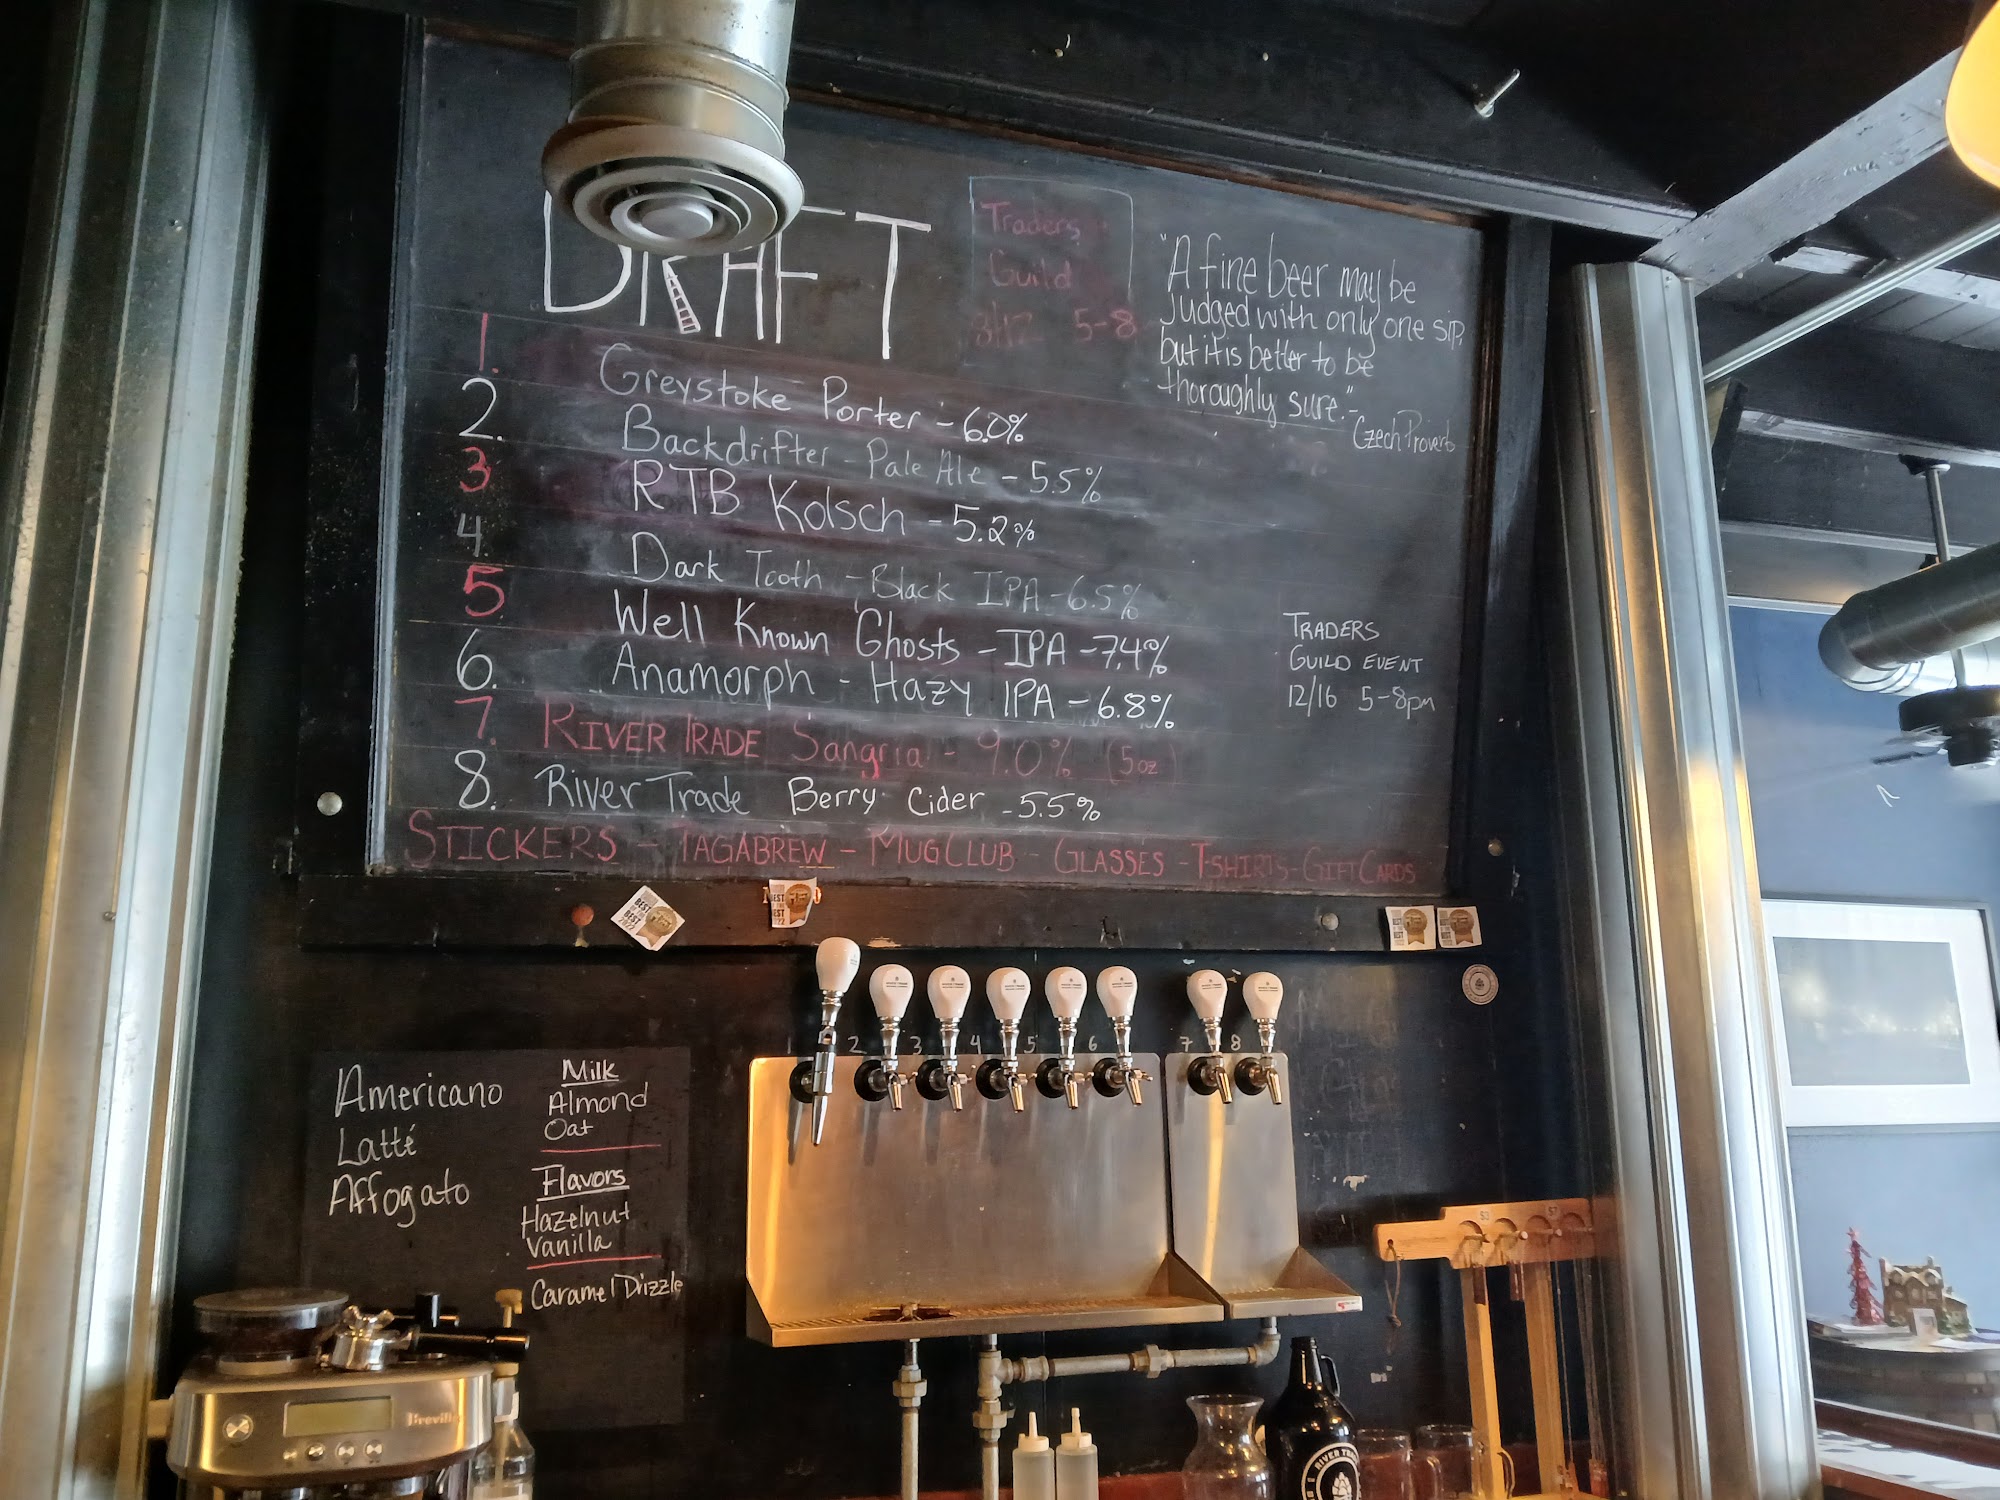 DRAFT
Traders
Guild
5-8
"A fine beer may be
Judged with only one sip,
but it is better to be
thoroughly sure."-
Czech Proverb
1. Greystoke Porter - 6.0%
2. Backdrifter - Pale Ale - 5.5%
3 RTB Kolsch - 5.2%
4. Dark Tooth - Black IPA - 6.5%
5. Well Known Ghosts - IPA - 7.4%
6. Anamorph - Hazy IPA - 6.8%
7. RIVER TRADE Sangria - 9.0% (5oz)
8. River Trade Berry Cider - 5.5%
TRADERS
GUILD EVENT
12/16 5-8pm
STICKERS - TAGABREW - MUGCLUB - GLASSES - T-SHIRTS - GIFT CARDS
BEST
OF THE
BEST
2022
1 2 3 4 5 6 7 8
Americano
Latté
Affogato
Milk
Almond
Oat
Flavors
Hazelnut
Vanilla
Caramel Drizzle
Breville
RIVER TRADE